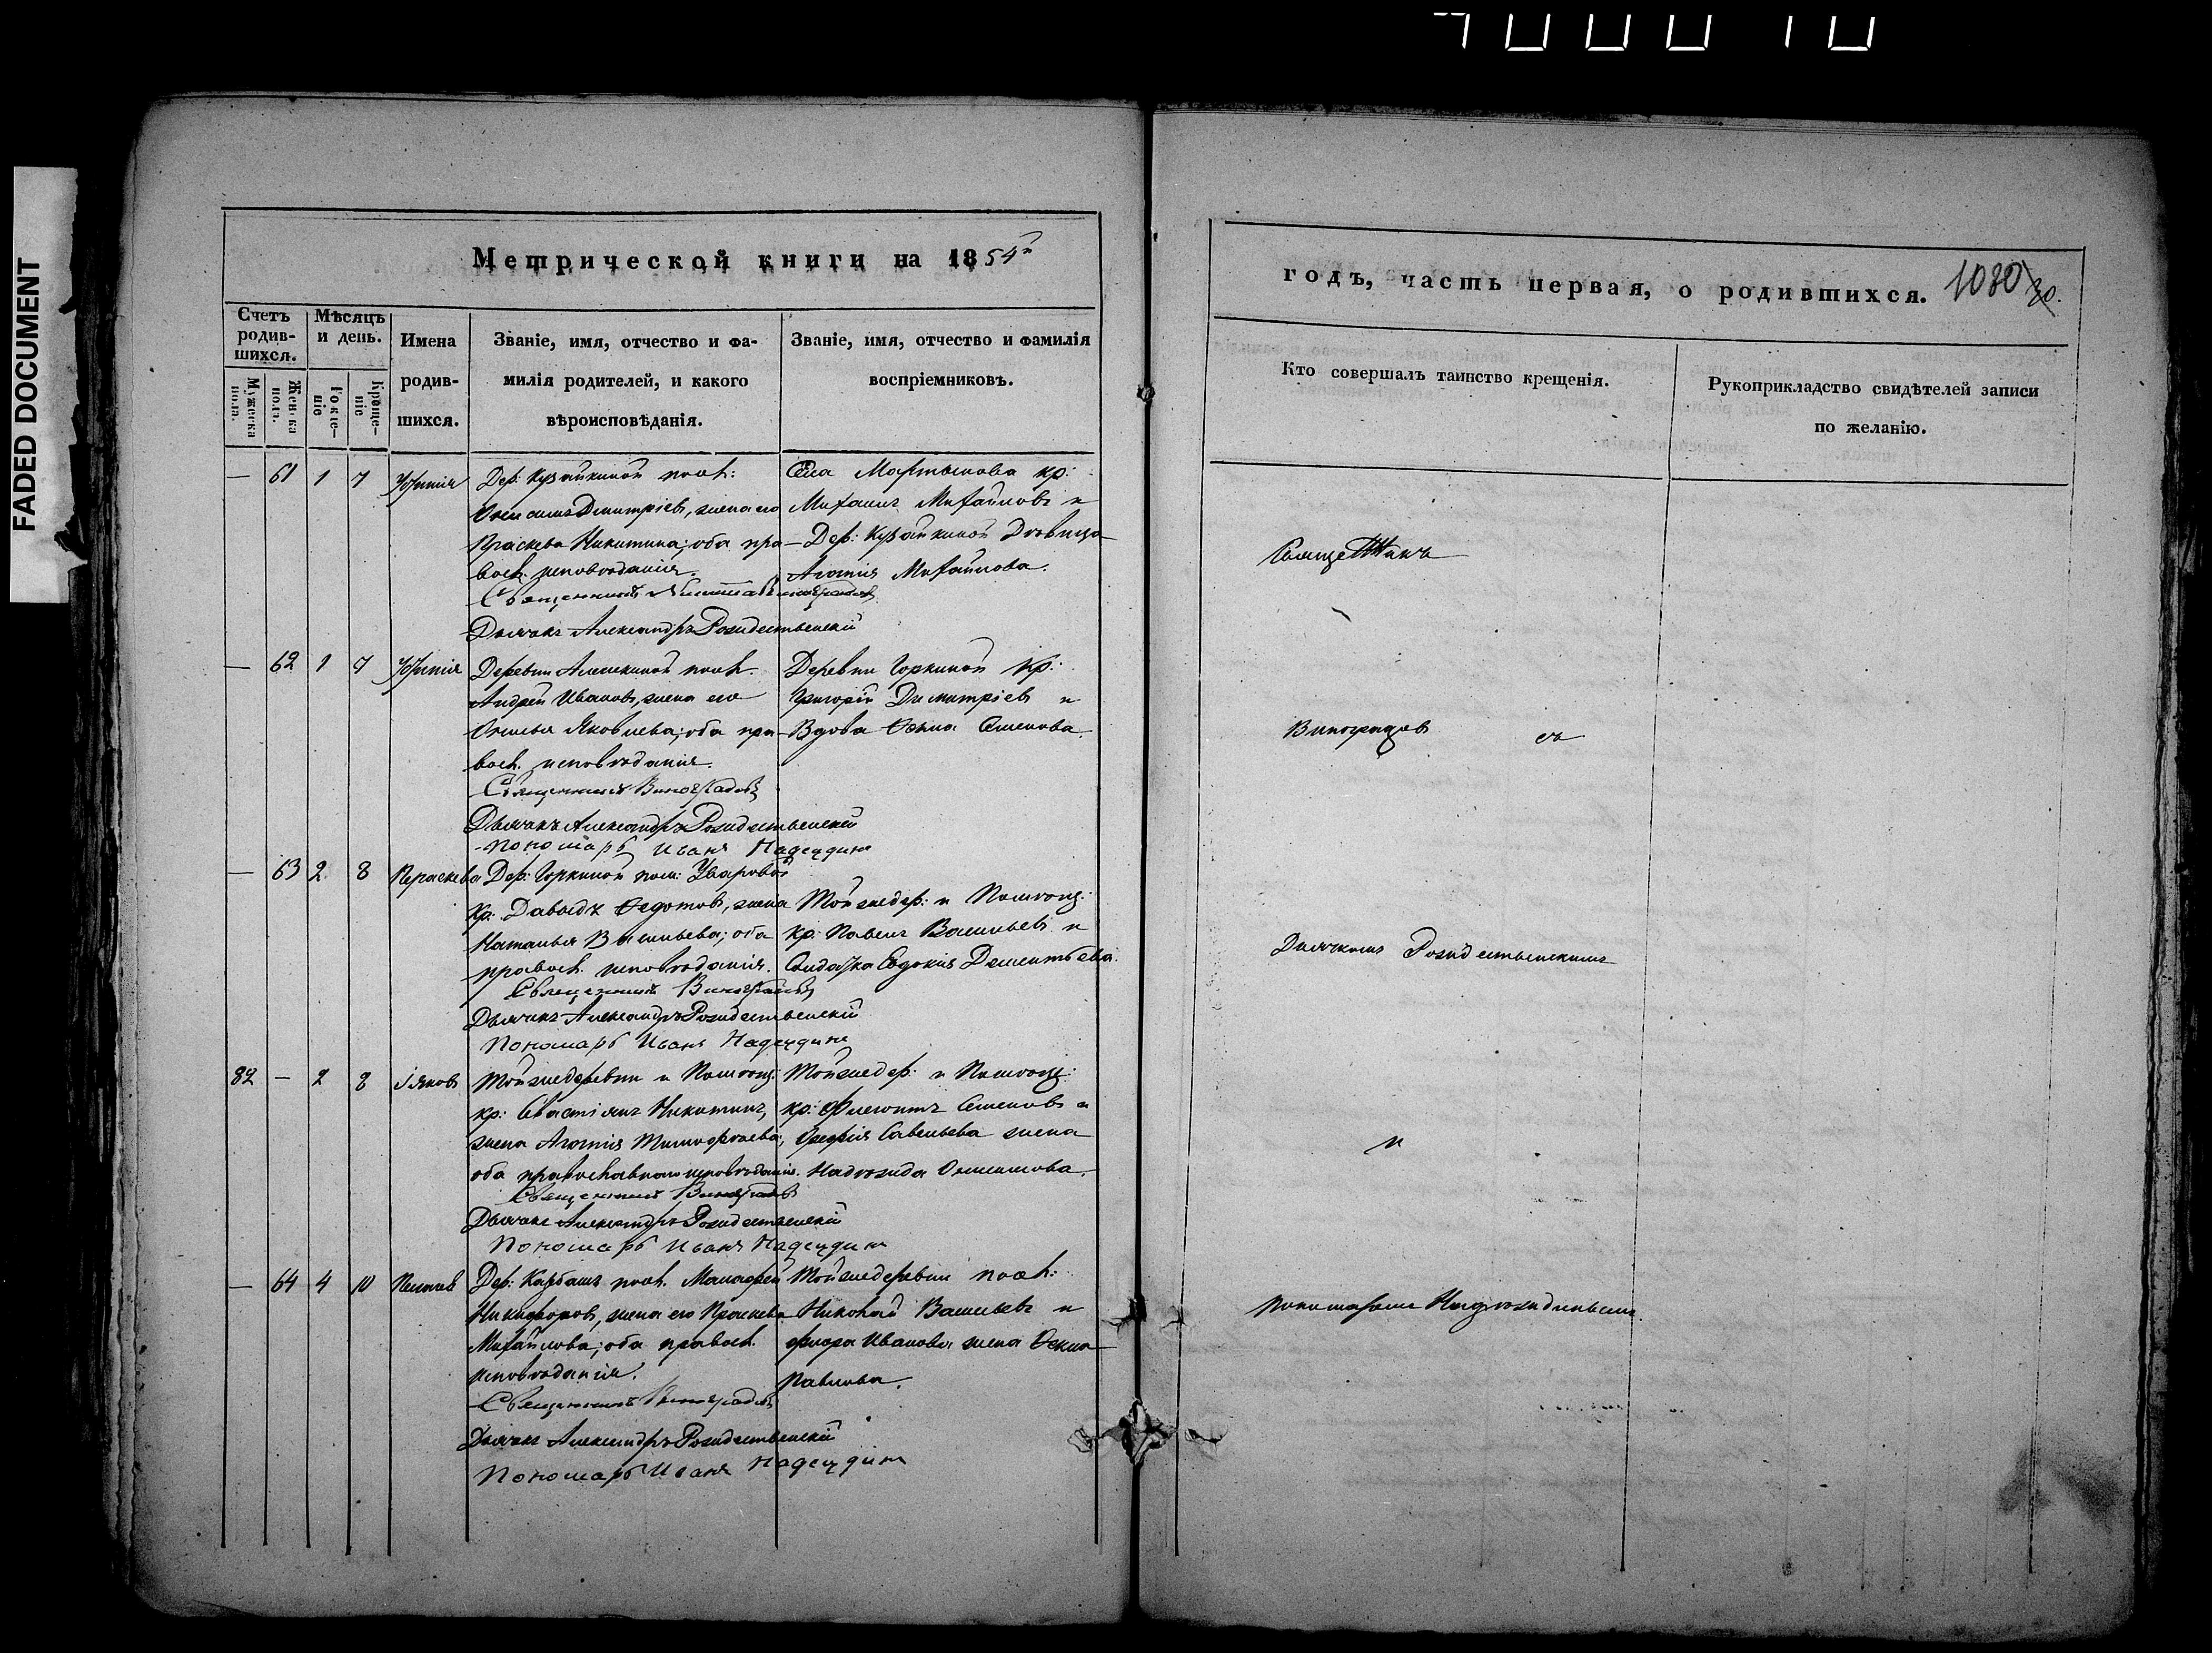 FADED DOCUMENT
Метрической книги на 1854й
Счетъ родившихся.
Мужеска пола.
Женска пола.
Мѣсяцъ и день.
Рожденіе
Крещеніе
Имена родившихся.
Званіе, имя, отчество и фамилія родителей, и какого вѣроисповѣданія.
Званіе, имя, отчество и фамилія воспріемниковъ.
— 61 1 7
Дер: Кузайкиной
Димитріевъ, жена его
Праскева Никитина; оба пра-
восл. исповѣданія.
Священникъ
Дьячекъ Александръ Рождественскій
Села Мартынова кр:
Михаилъ Михайловъ и
Дер: Кузайкиной Дѣвица
Агафія Михайлова.
— 62 1 7
Деревни Алешкиной
Андрей Ивановъ, жена его
Яковлева; оба пра-
восл. исповѣданія.
Священникъ Виноградовъ
Дьячекъ Александръ Рождественскій
Пономарь Иванъ Надеждинъ
Деревни Горкиной кр:
Григорій Димитріевъ и
Вдова Ѳекла Семенова.
— 63 2 8 Праскева
Дер: Горкиной пом: Уваровой
кр: Давыдъ Ѳедотовъ, жена
Наталья Васильева; оба
правосл. исповѣданія.
Священникъ Виноградовъ
Дьячекъ Александръ Рождественскій
Пономарь Иванъ Надеждинъ
Тойжедер: и Помѣщ:
кр: Павелъ Васильевъ и
Солдатка Евдокія Дементьева.
82 — 2 8 Іяковъ
Тойжедеревни и Помѣщ:
кр: Севастіянъ Никитинъ,
жена Агафія Тимофѣева;
оба православнаго исповѣданія.
Священникъ Виноградовъ
Дьячекъ Александръ Рождественскій
Пономарь Иванъ Надеждинъ
Тойжедер: и Помѣщ:
кр: Флегонтъ Семеновъ и
Савельева жена
Надѣжда
— 64 4 10
Дер: Карбаш
Никифоровъ, жена его Праскева
Михайлова; оба правосл.
исповѣданія.
Священникъ Виноградовъ
Дьячекъ Александръ Рождественскій
Пономарь Иванъ Надеждинъ
Тойжедеревни
Николай Васильевъ и
Флора Иванова жена Ѳекла
Павлова.
годъ, часть первая, о родившихся. 1080 30.
Кто совершалъ таинство крещенія.
Рукоприкладство свидѣтелей записи по желанію.
Виноградовъ съ
Дьячкомъ Рождественскимъ
и
Пономаремъ Надѣждинымъ.